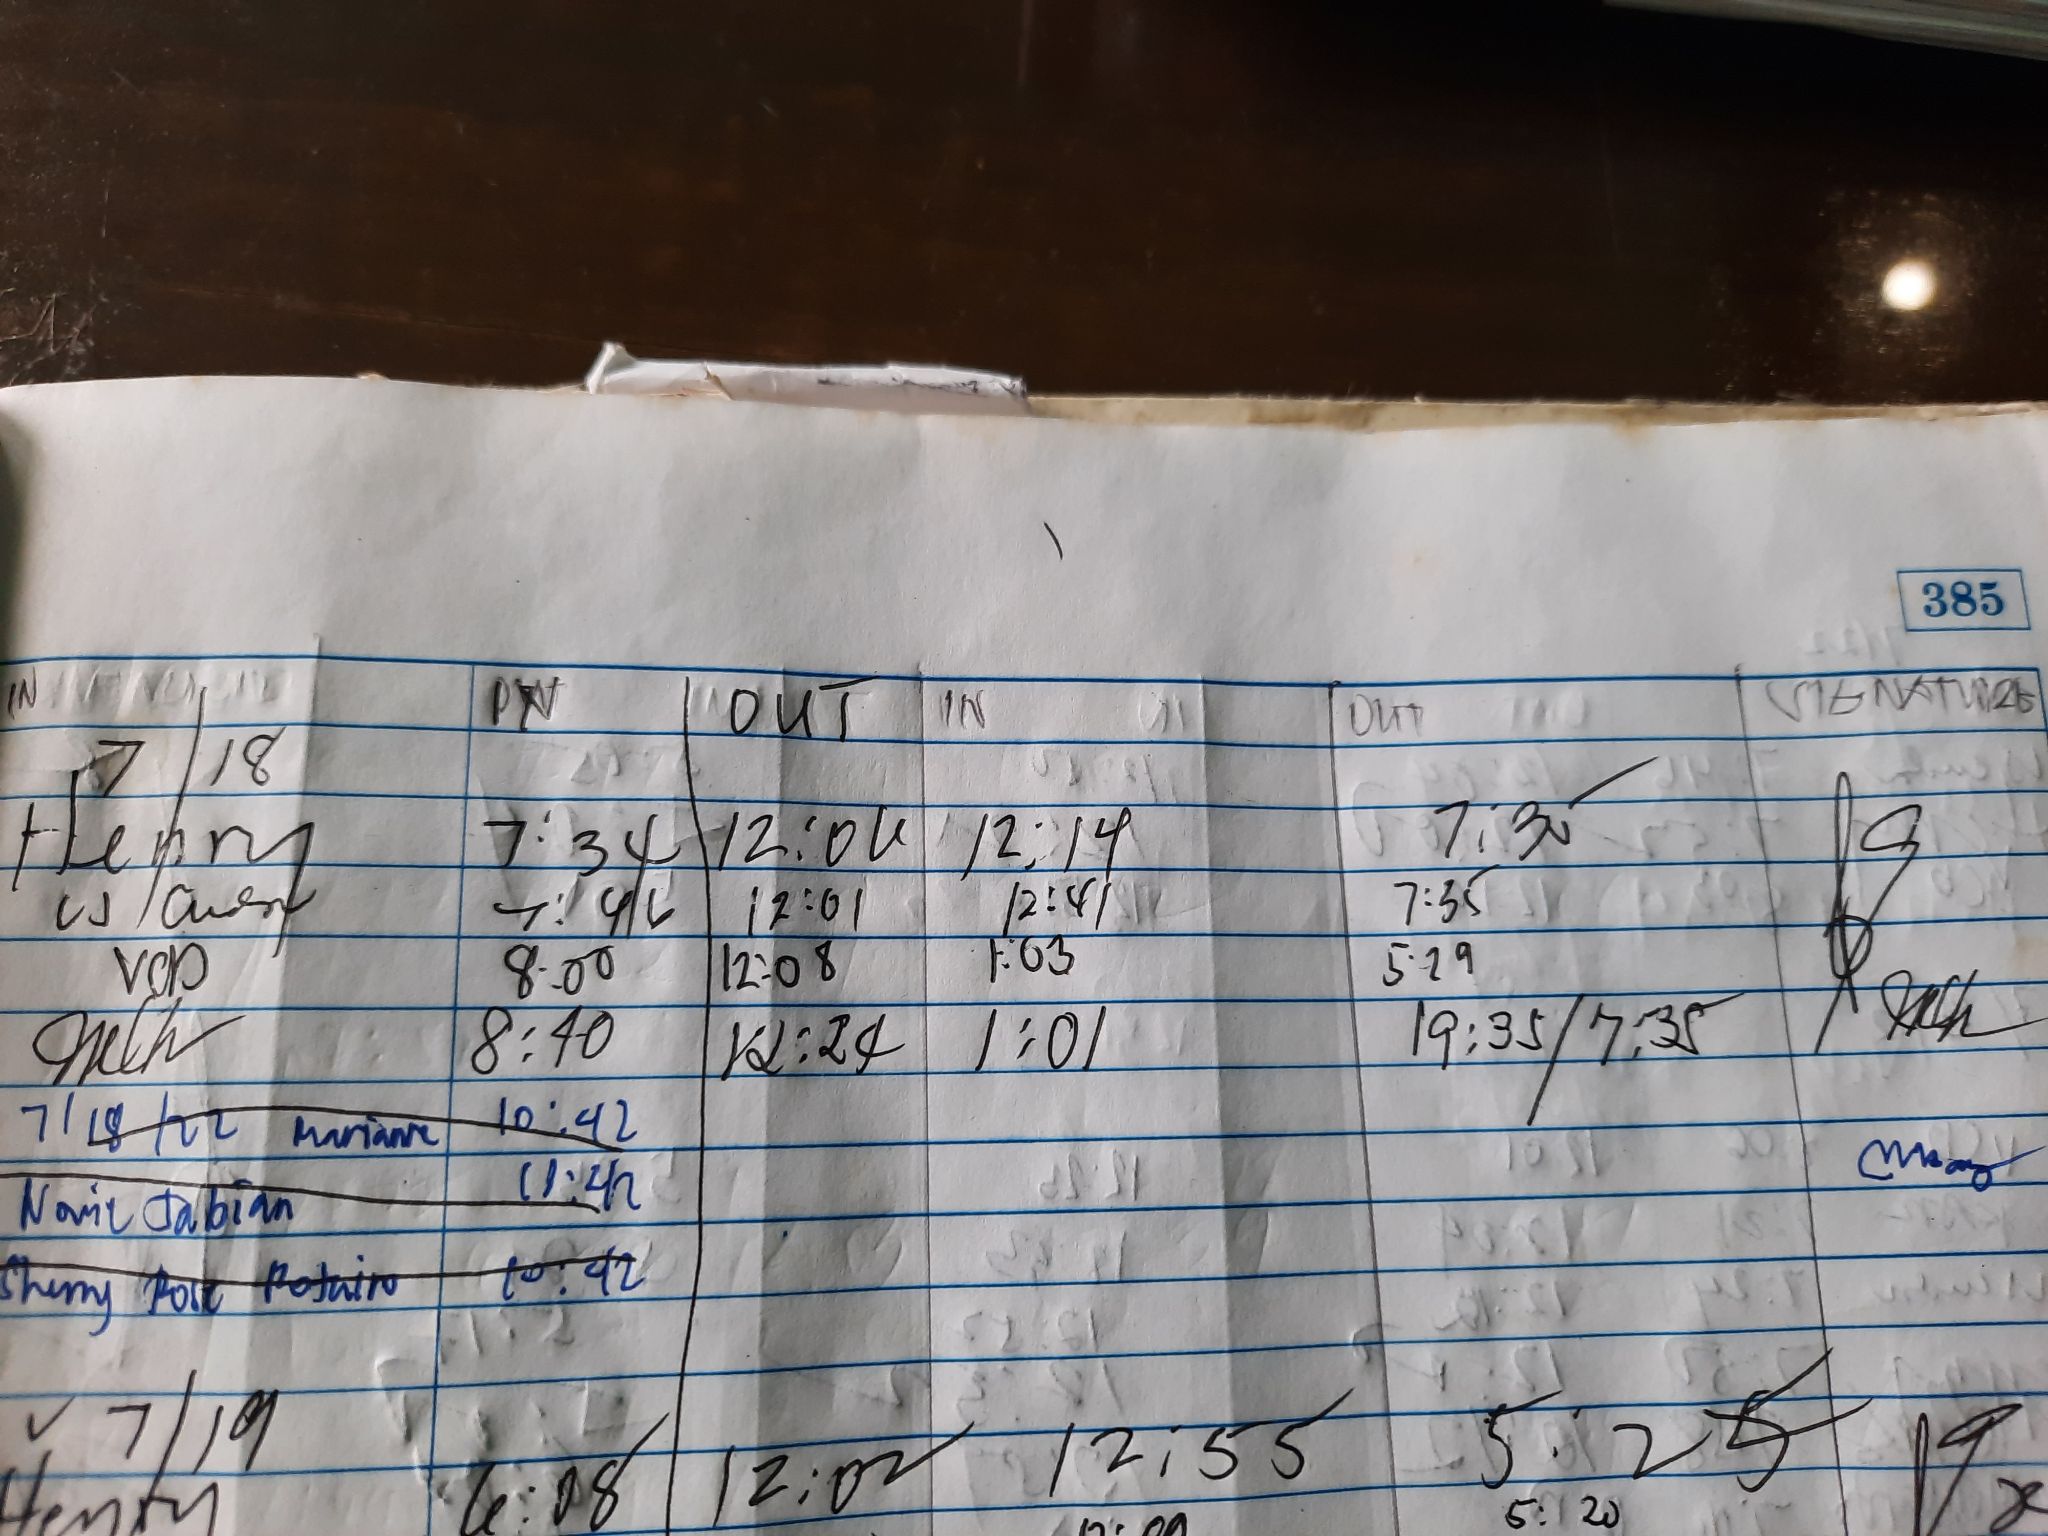 385
IN IN OUT IN OUT SIGNATURE
7/18
Henry 7:34 12:04 12:14 7:35
7:46 12:01 12:41 7:35
VCD 8:00 12:08 1:03 5:29
8:40 12:24 1:01 19:35/7:35
7/18/22 Marianne 10:42
Novie Jabian 11:42
Sherry Rose 10:42
7/19
Henry 6:08 12:02 12:55 5:25
12:09 5:20